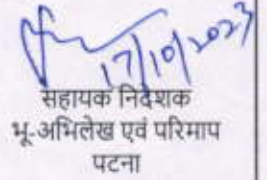 17/10/2023
सहायक निदेशक
भू-अभिलेख एवं परिमाप
पटना